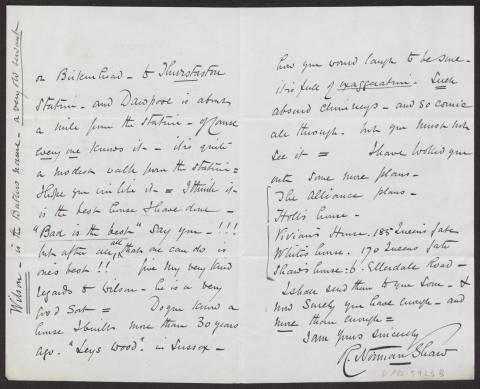 or Birkenhead - to Thurstaston
Station - and Dawpool is about
a mile from the station - of course
every one knows it - it is quite
a modest walk from the station =
I hope you will like it - = I think it
is the best house I have done -
"Bad is the best" say you - !!!
but after all, all that one can do is
ones best !! Give my very kind
regards to Wilson - he is a very
Good Sort = Do you know a
house I built more than 30 years
ago. "Leys Wood". in Sussex -
Wilson - is the Butlers name - a very old servant
how you would laugh to be sure -
it is full of exaggeration. Such
absurd chimneys - and so comic
all through. but you must not
see it = I have looked you
out some more plans -
The Alliance plans -
Holls house -
Vivians House. 185 Queens Gate
Whites house. 170 Queens Gate
Shaws house: 6. Ellerdale Road -
I shall send them to you &
now surely you have enough - and
more than enough =
I am Yours Sincerely
R. Norman Shaw